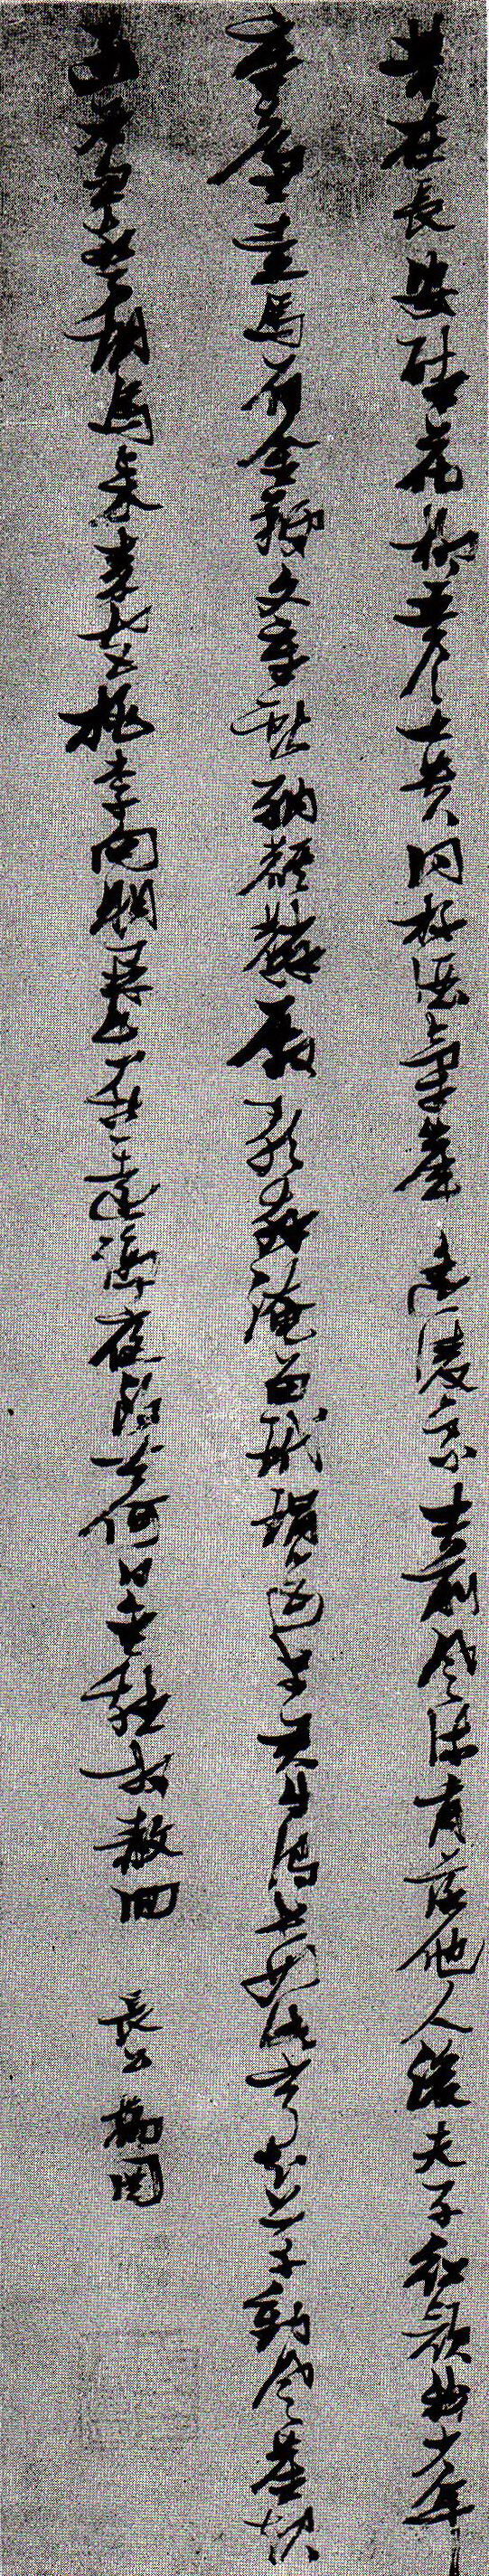 昔在長安醉花柳五侯七貴同杯酒氣岸遙凌豪士前風流肯落他人後夫子紅顏我少年
章臺走馬著金鞭文章獻納麒麟殿歌舞淹留玳瑁筵與君自謂長如此寧知草動風塵起
函谷忽驚胡馬來秦宮桃李向明開我愁遠謫夜郎去何日金雞放赦回 長公瑞圖